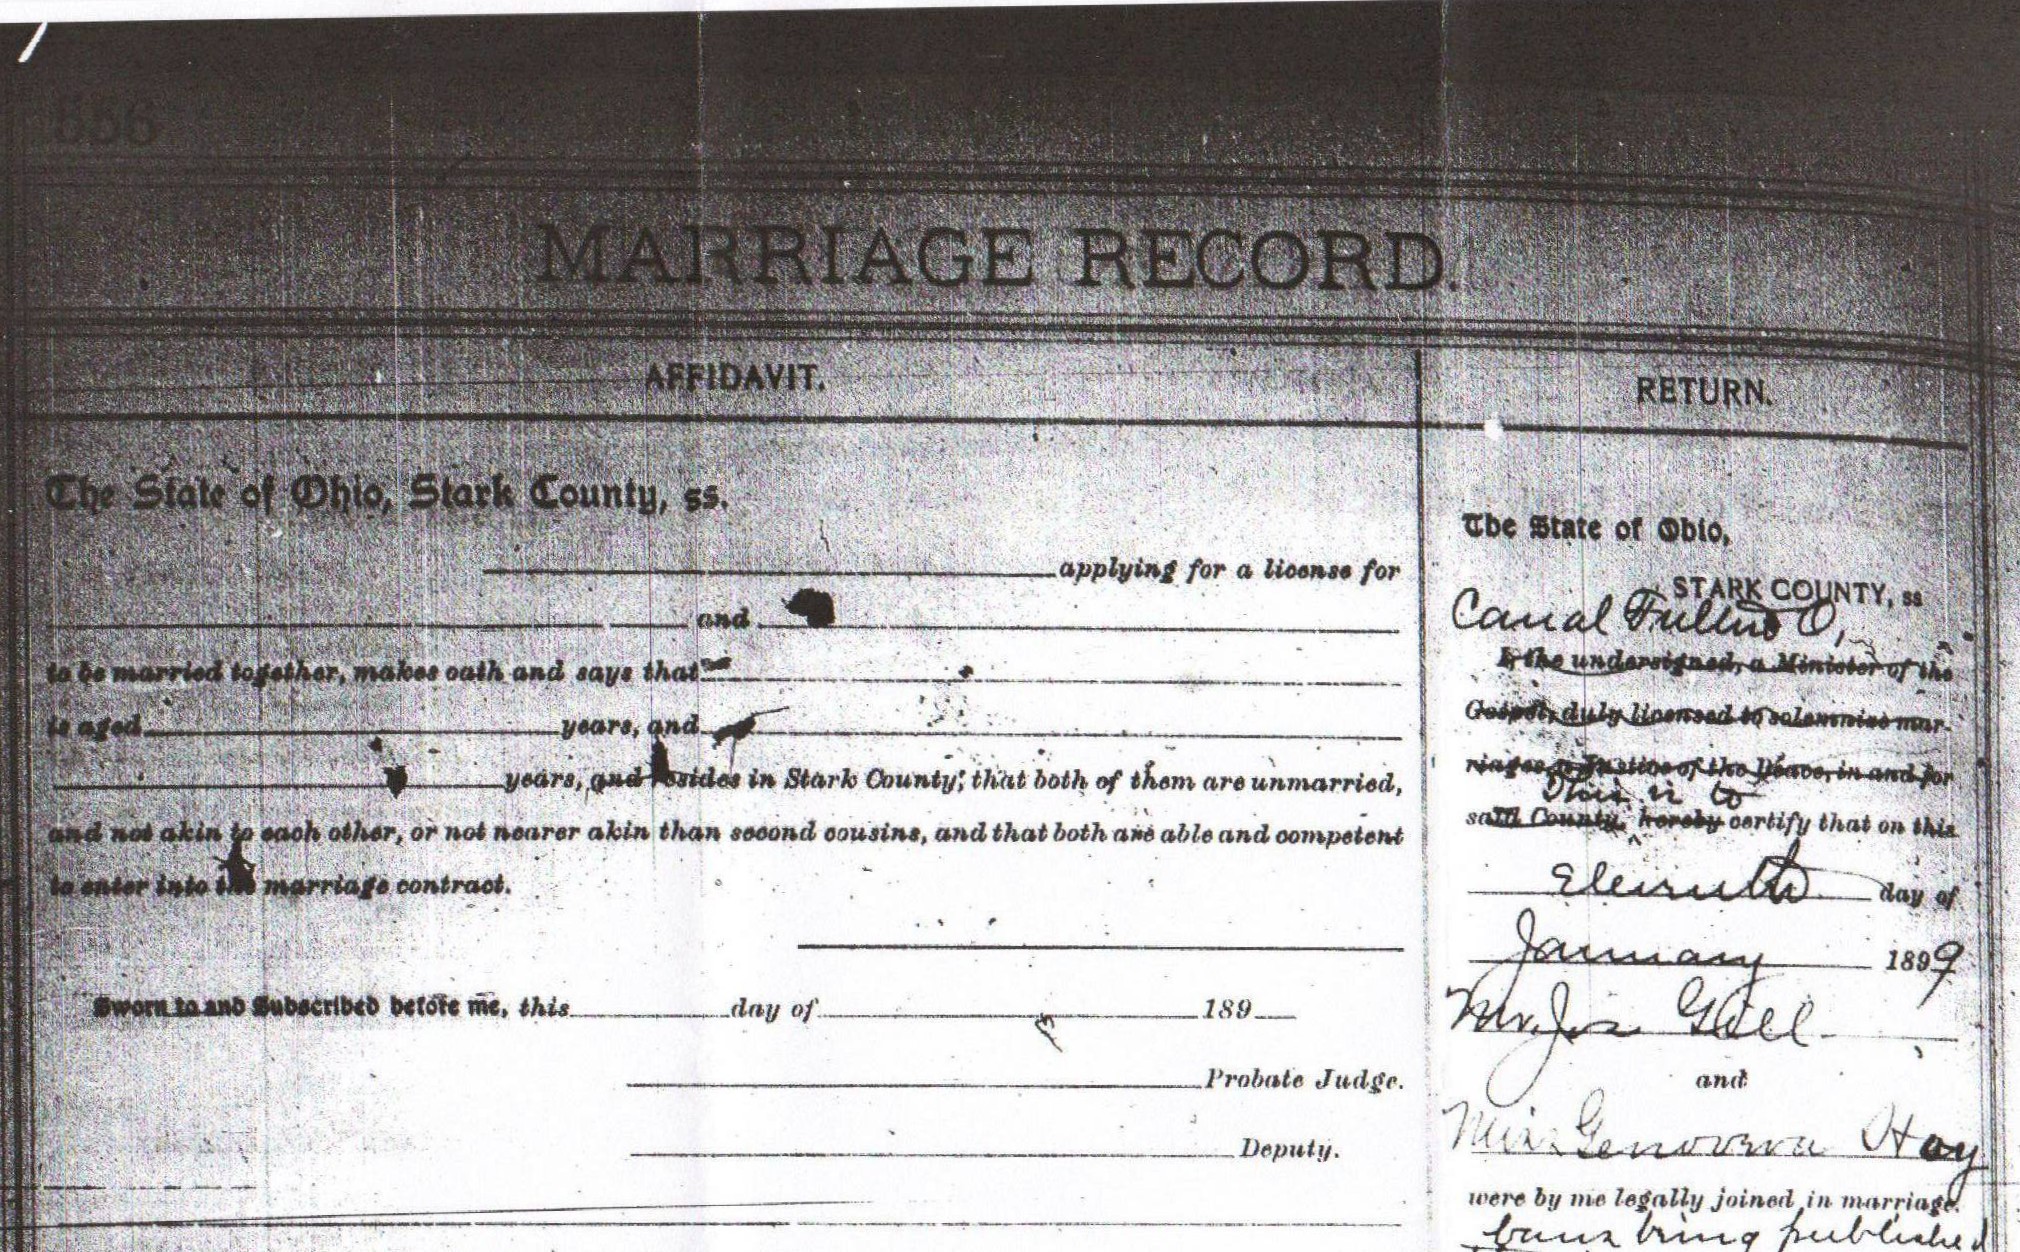 556
MARRIAGE RECORD.
AFFIDAVIT.
The State of Ohio, Stark County, ss.
applying for a license for
and
to be married together, makes oath and says that
is aged years, and
years, and resides in Stark County; that both of them are unmarried,
and not akin to each other, or not nearer akin than second cousins, and that both are able and competent
to enter into the marriage contract.
Sworn to and Subscribed before me, this day of 189
Probate Judge.
Deputy.
RETURN.
The State of Ohio,
STARK COUNTY, ss
Canal Fulton O,
I, the undersigned, a Minister of the
Gospel, duly licensed to solemnize mar-
riages, a Justice of the Peace, in and for
This is to
said County, hereby certify that on this
Eleventh day of
January 1899
Mr. Jos. Gill
and
Miss Genoveva Hoy
were by me legally joined in marriage.
bans being published